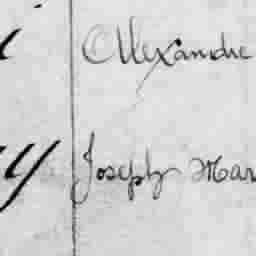 Alexandre
Joseph Mar